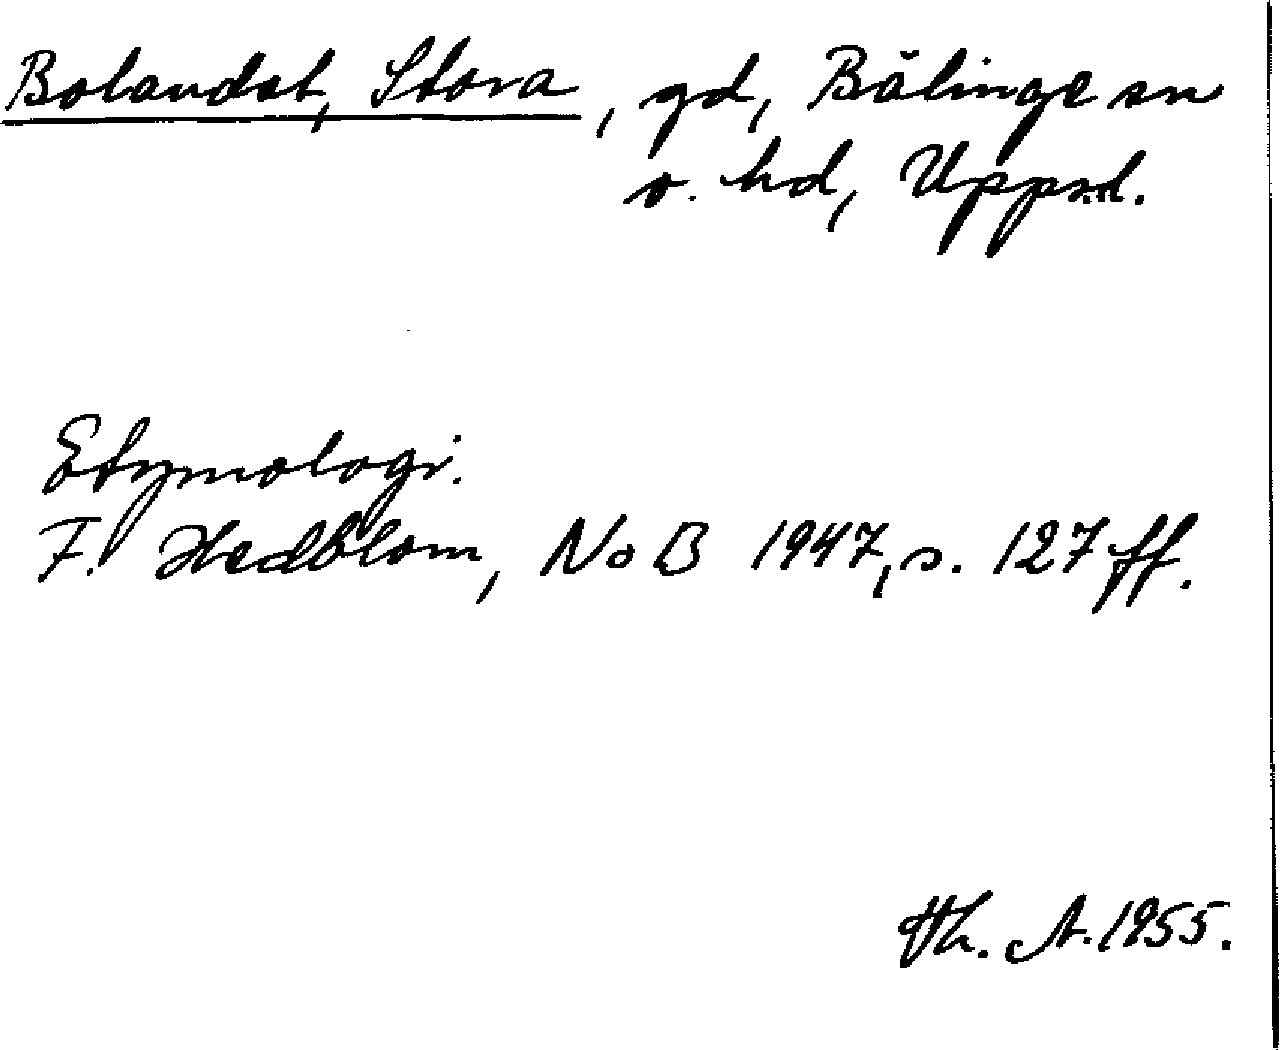 Bolandet, Stora, gd, Bälinge sn
o. hd, Uppsl.
Etymologi.
F. Hedblom, NoB 1947, s. 127 ff.
Th. A. 1955.